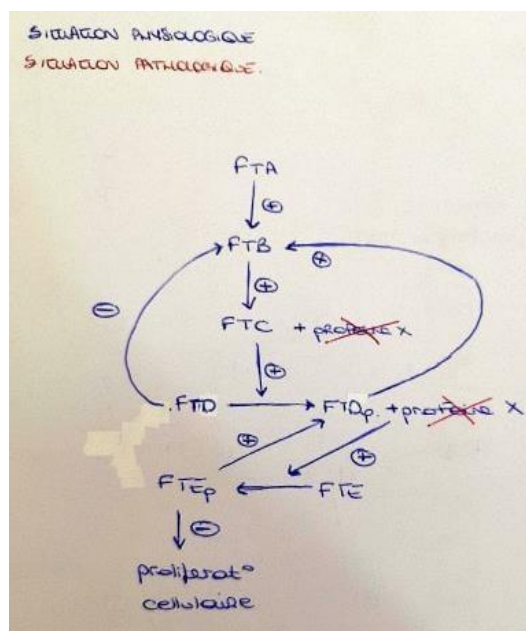 SITUATION PHYSIOLOGIQUE
SITUATION PATHOLOGIQUE.
FTA
⊕
FTB
⊕
⊖
⊕
FTC + protéine X
⊕
FTD
FTDp + protéine X
⊕
⊕
FTEp
FTE
⊖
proliferat°
cellulaire